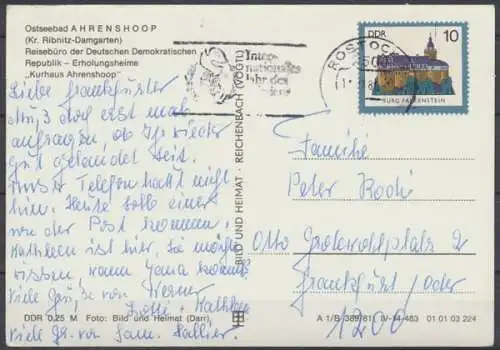 Ostseebad AHRENSHOOP
(Kr. Ribnitz-Damgarten)
Reisebüro der Deutschen Demokratischen
Republik – Erholungsheime
„Kurhaus Ahrenshoop"
Liebe Frankfurter
Muß doch erst mal
anfragen, ob Ihr wieder
gut gelandet seit.
Telefon haut nicht
hin. Heute soll einer
von der Post kommen.
Kathleen ist hier, sie möchte
wissen, wann Jana kommt.
Viele Grüße von Werner
Kathleen
Viele Gr. von Fam.
DDR 0,25 M Foto: Bild und Heimat (Darr)
BILD UND HEIMAT · REICHENBACH (VOGTL)
Inter-
nationales
Jahr des
ROSTOCK
DDR 10
BURG FALKENSTEIN
Familie
Peter
Otto Grotewohlplatz 2
Frankfurt/Oder
1200
A 1/B 389/81 IV-14-483 01 01 03 224